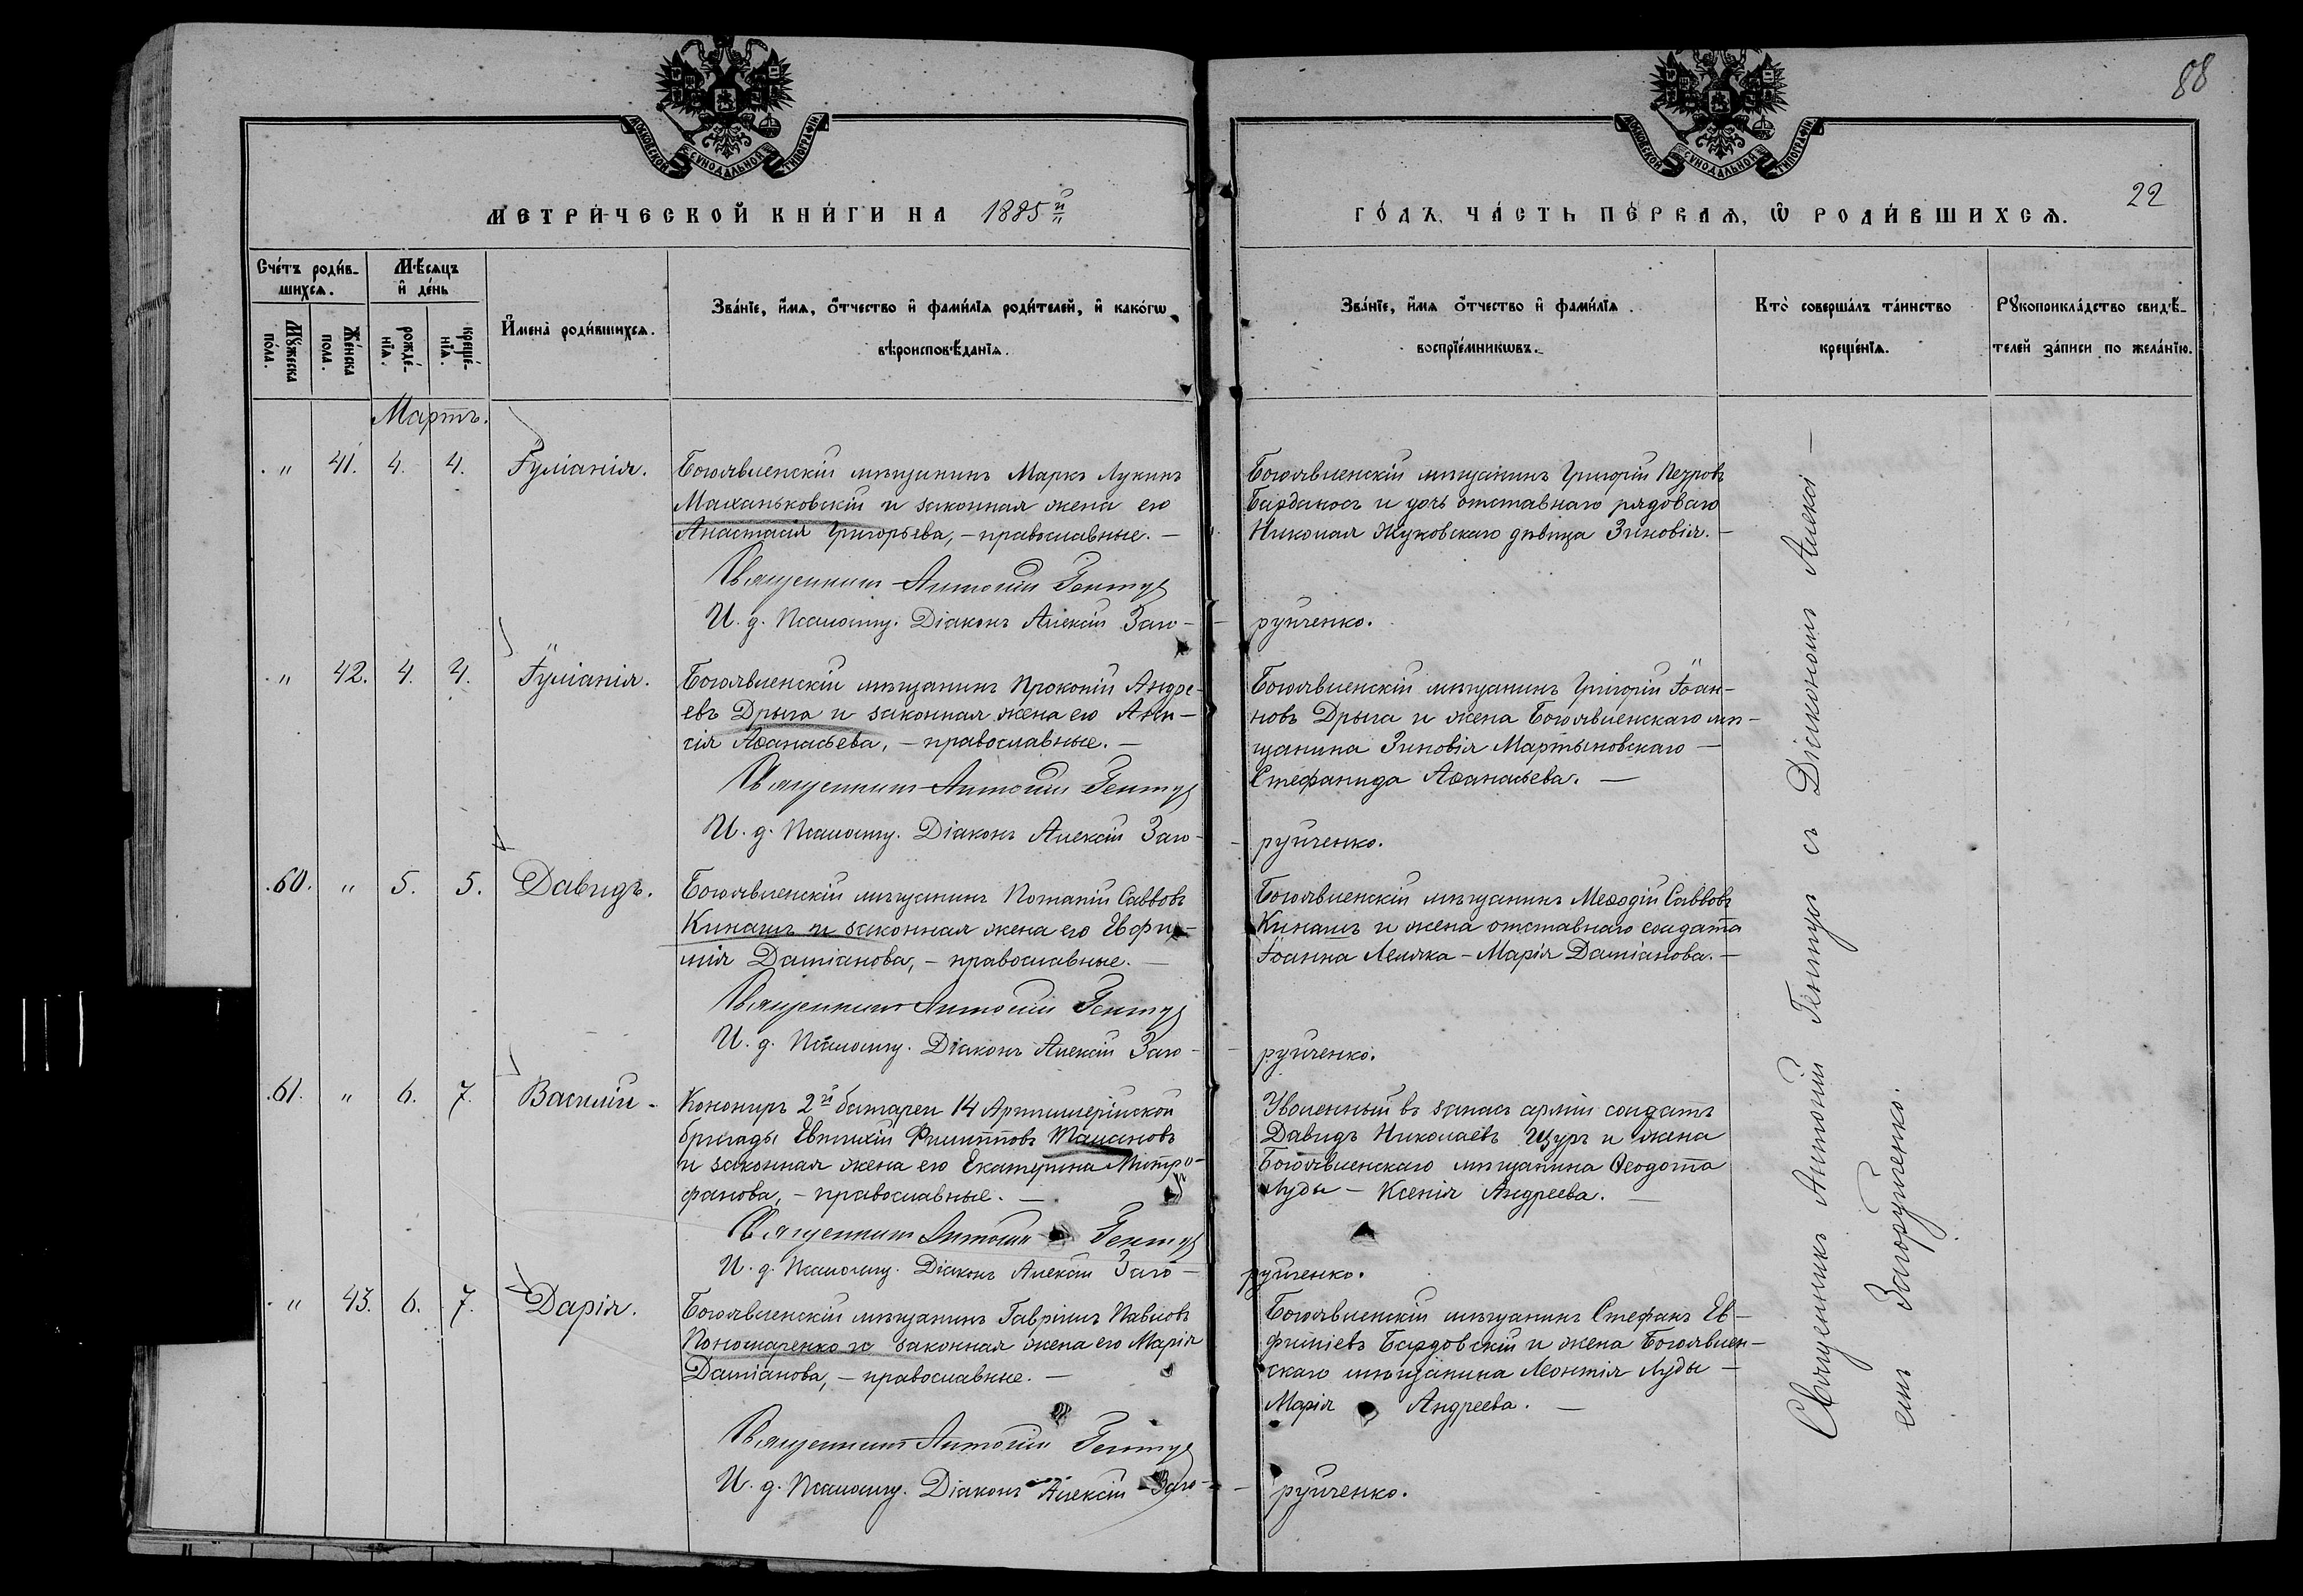 88
МОСКОВСКОЙ СѴНОДАЛЬНОЙ ТИПОГРАФІИ
МОСКОВСКОЙ СѴНОДАЛЬНОЙ ТИПОГРАФІИ
22
МЕТРИ́ЧЕСКОЙ КНИ́ГИ НА 1885й
ГО́ДЪ, ЧА́СТЬ ПЕ́РВАѦ, Ѡ РОДИ́ВШИХСѦ.
Сче́тъ роди́в-
шихсѧ.
Мꙋ́жеска
по́ла.
Же́нска
по́ла.
Мѣ́сѧцъ
и҆ де́нь
рожде́-
нїѧ.
креще́-
нїѧ.
И҆мена̀ роди́вшихсѧ.
Зва́нїе, и҆́мѧ, ѻ҆́тчество и҆ фами́лїѧ роди́телей, и҆ како́гѡ
вѣроисповѣ́данїѧ.
Зва́нїе, и҆́мѧ ѻ҆́тчество и҆ фами́лїѧ
воспрїе́мникѡвъ.
Кто̀ соверша́лъ та́инство
креще́нїѧ.
Рꙋкоприкла́дство свидѣ́-
телей за́писи по жела́нїю.
Мартъ.
" 41. 4. 4. Іуліанія.
Богоявленскій мѣщанинъ Маркъ Лукинъ
Маханьковскій и законная жена его
Анастасія Григорьева, – православные. –
Священникъ Антоній Гентуг
И. д. Псаломщ. Діаконъ Алексій Заго-
Богоявленскій мѣщанинъ Григорій Петровъ
Бардакосъ и дочь отставнаго рядоваго
Николая Жуковскаго дѣвица Зиновія. –
рупченко.
" 42. 4. 4. Іуліанія.
Богоявленскій мѣщанинъ Прокопій Андре-
евъ Дрыга и законная жена его Ани-
сія Аѳанасьева, – православные. –
Священникъ Антоній Гентуг
И. д. Псаломщ. Діаконъ Алексій Заго-
Богоявленскій мѣщанинъ Григорій Іоан-
новъ Дрыга и жена Богоявленскаго мѣ-
щанина Зиновія Мартыновскаго –
Стефанида Аѳанасьева. –
рупченко.
60. " 5. 5. Давидъ.
Богоявленскій мѣщанинъ Потапій Саввовъ
Кинашъ и законная жена его Евфи-
мія Даміанова, – православные. –
Священникъ Антоній Гентуг
И. д. Псаломщ. Діаконъ Алексій Заго-
Богоявленскій мѣщанинъ Меѳодій Саввовъ
Кинашъ и жена отставнаго солдата
Іоанна Лемяка – Марія Даміанова. –
рупченко.
61. " 6. 7. Василій –
Канониръ 2й батареи 14 Артиллерійской
бригады Евтихій Филипповъ Талановъ
и законная жена его Екатерина Митро-
фанова, – православные. –
Священникъ Антоній Гентуг
И. д. Псаломщ. Діаконъ Алексій Заго-
Уволенный въ запасъ арміи солдатъ
Давидъ Николаевъ Щуръ и жена
Богоявленскаго мѣщанина Ѳеодота
Луды – Ксенія Андреева. –
рупченко.
" 43. 6. 7. Дарія.
Богоявленскій мѣщанинъ Гавріилъ Павловъ
Пономаренко и законная жена его Марія
Даміанова, – православные. –
Священникъ Антоній Гентуг
И. д. Псаломщ. Діаконъ Алексій Заго-
Богоявленскій мѣщанинъ Стефанъ Ев-
фиміевъ Бардовскій и жена Богоявлен-
скаго мѣщанина Леонтія Луды –
Марія Андреева. –
рупченко.
Священникъ Антоній Гентугъ съ Діакономъ Алексі-
емъ Загорупченко.